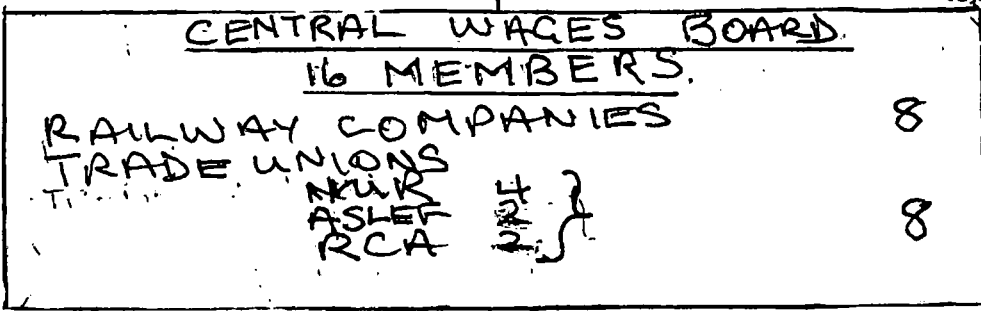 CENTRAL WAGES BOARD.
16 MEMBERS.
RAILWAY COMPANIES 8
TRADE UNIONS
NUR 4
ASLEF 2 } 8
RCA 2